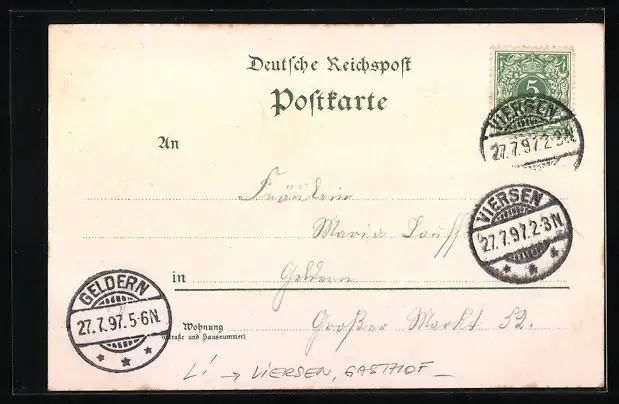 Deutsche Reichspost
Postkarte
5
VIERSEN
27.7.97.2-3N.
An
Fräulein
Maria
VIERSEN
27.7.97.2-3N.
in Geldern
GELDERN
27.7.97.5-6N.
Wohnung
(Straße und Hausnummer)
Großer Markt 52.
Li → VIERSEN, GASTHOF –